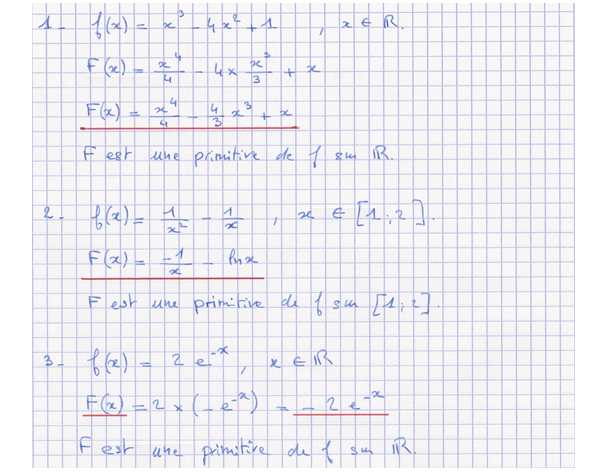 1- f(x) = x³ - 4x² + 1 , x ∈ ℝ.
F(x) = x⁴/4 - 4 × x³/3 + x
F(x) = x⁴/4 - 4/3 x³ + x
F est une primitive de f sur ℝ.
2- f(x) = 1/x² - 1/x , x ∈ [1;2].
F(x) = -1/x - ln x
F est une primitive de f sur [1;2].
3- f(x) = 2 e⁻ˣ , x ∈ ℝ
F(x) = 2 × (-e⁻ˣ) = - 2 e⁻ˣ
F est une primitive de f sur ℝ.